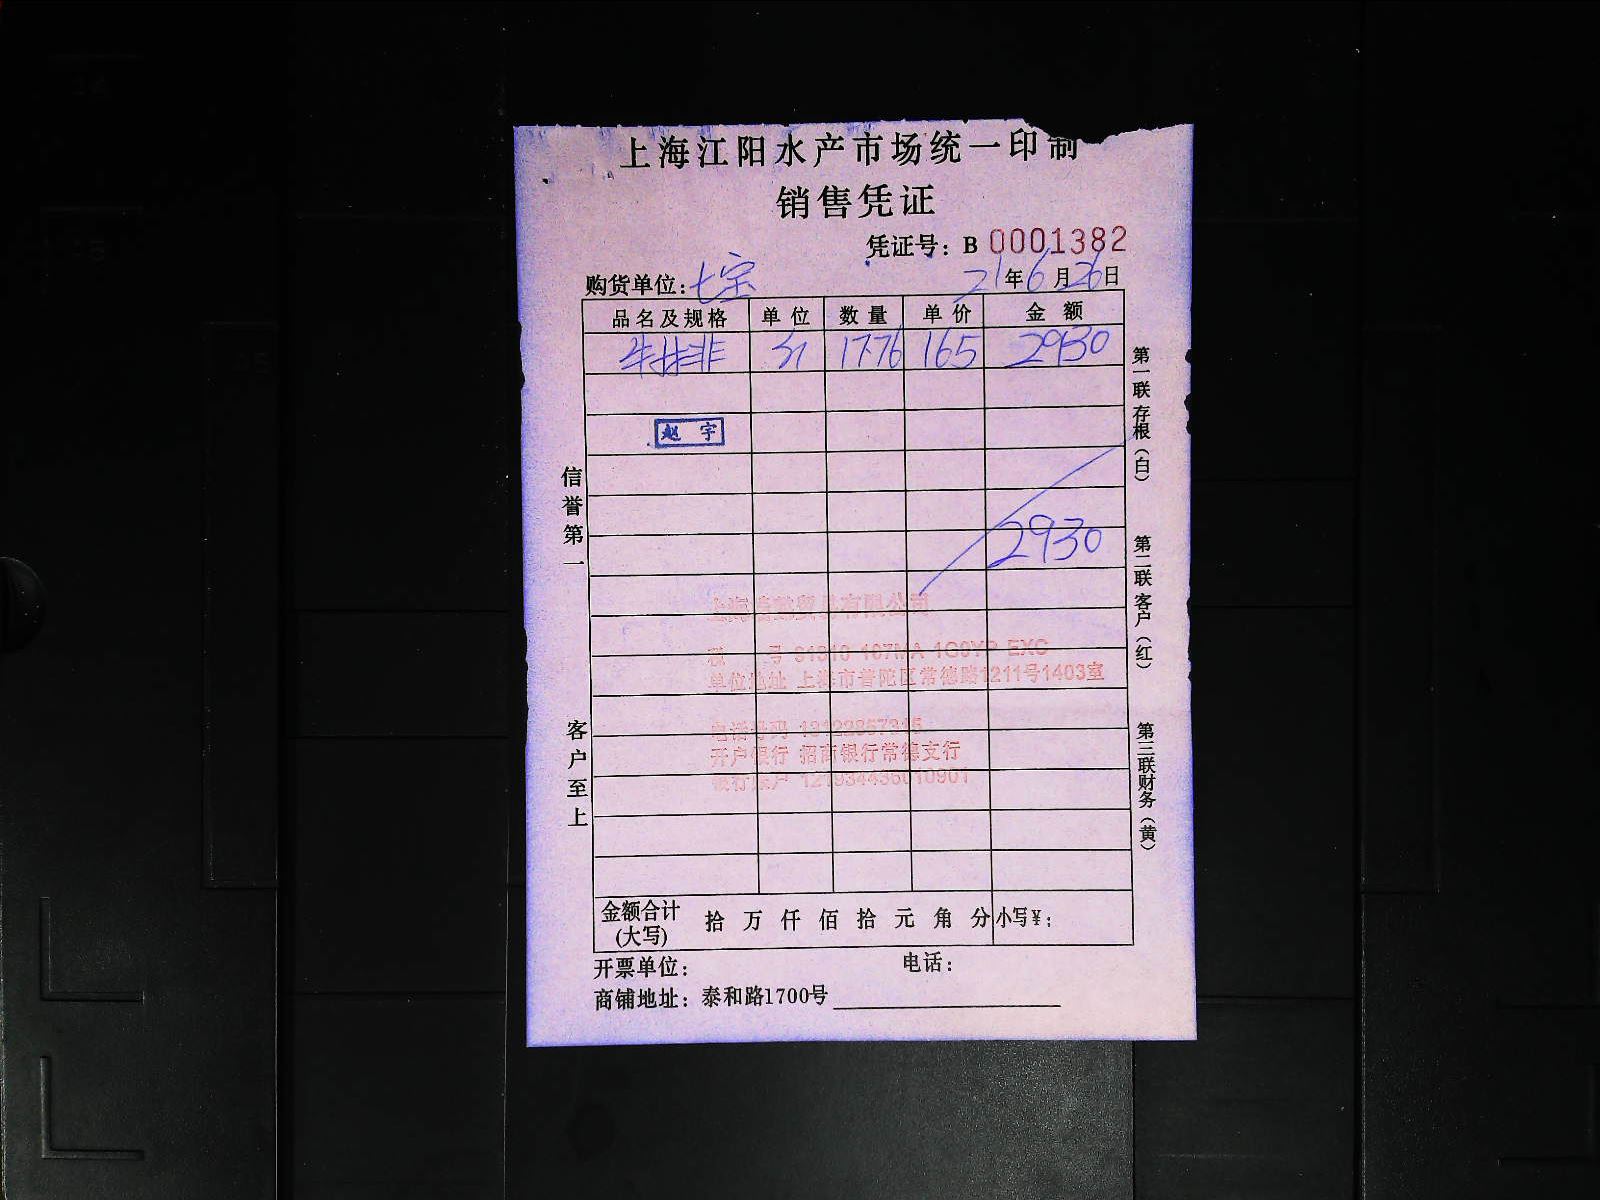 上海江阳水产市场统一印制
销售凭证
凭证号：B 0001382
购货单位：七宝 21年6月26日
品名及规格 单位 数量 单价 金额
牛排 斤 17.76 165 2930
赵宇
2930
有限公司
单位地址 上海市普陀区常德路1211号1403室
开户银行 招商银行常德支行
金额合计(大写) 拾 万 仟 佰 拾 元 角 分 小写¥：
开票单位： 电话：
商铺地址：泰和路1700号
信誉第一
客户至上
第一联存根（白）
第二联客户（红）
第三联财务（黄）